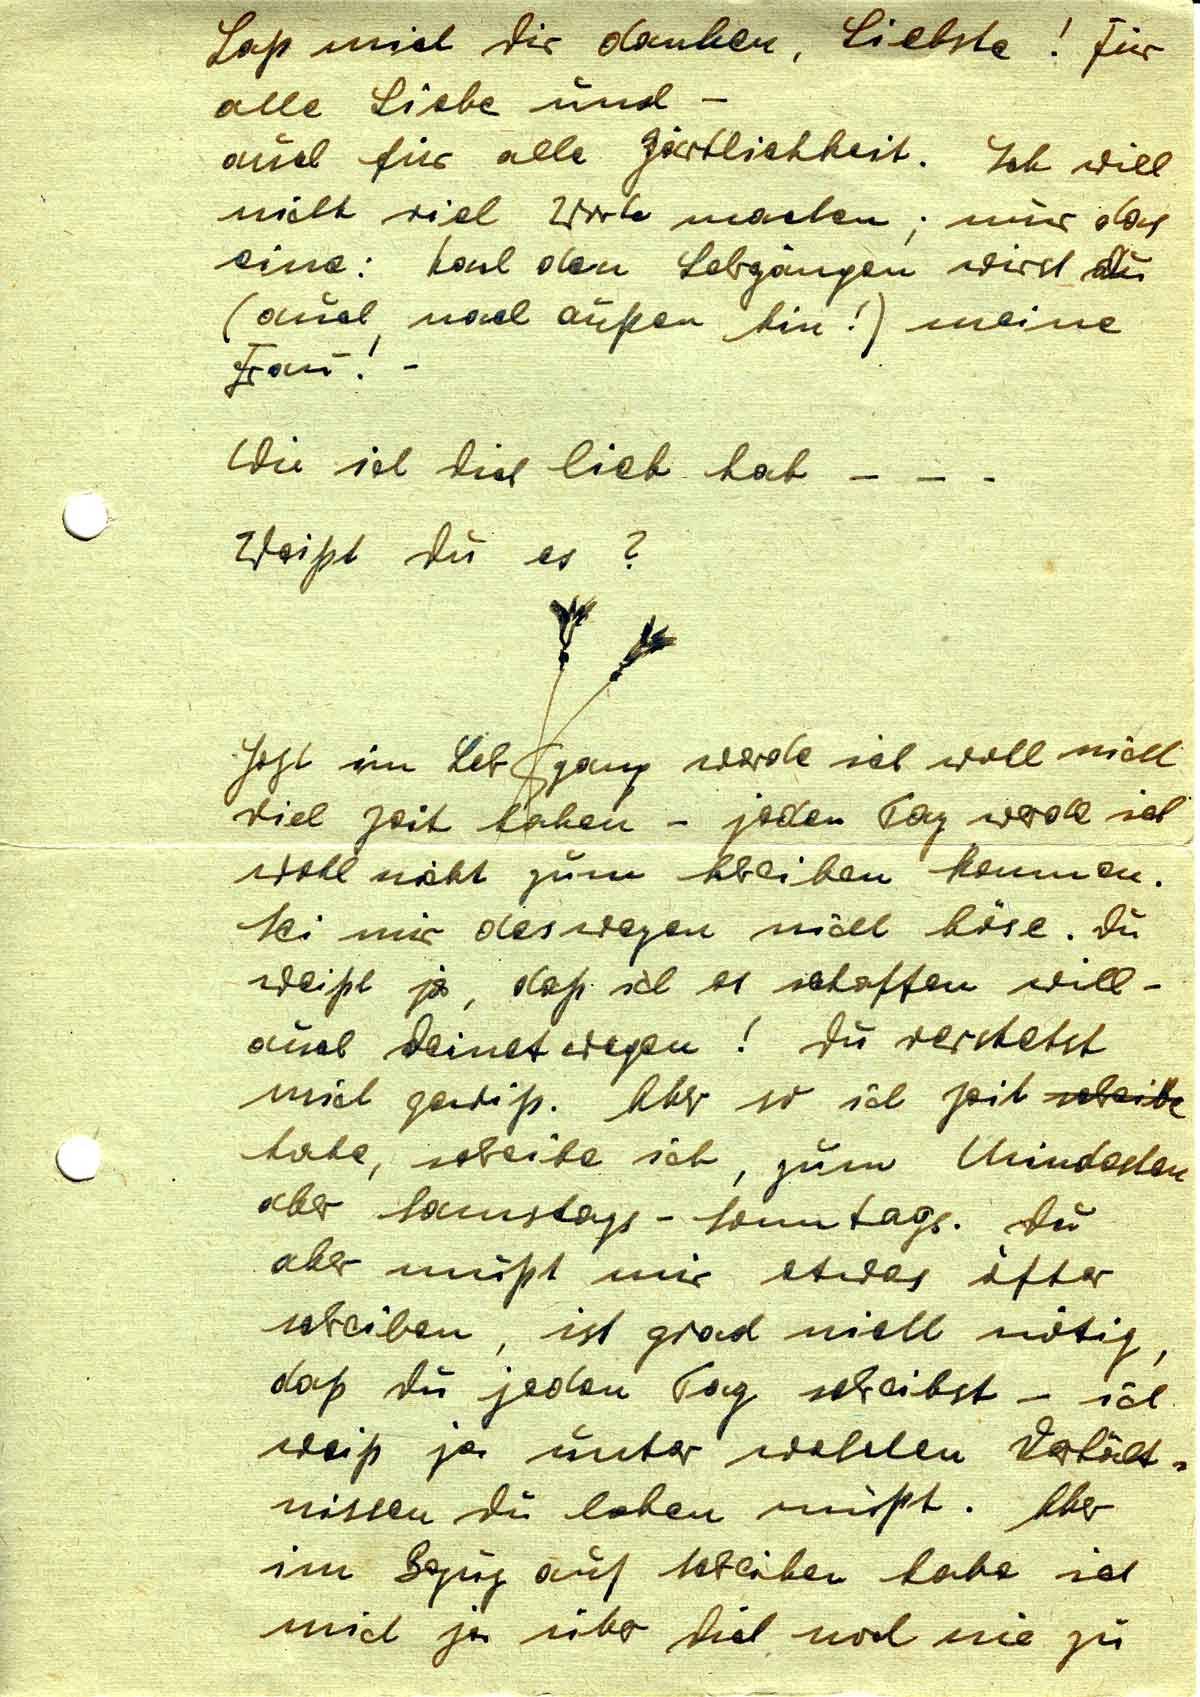 Laß mich Dir danken, Liebste! Für
alle Liebe und –
auch für alle Zärtlichkeit. Ich will
nicht viel Worte machen; nur das
eine: nach den Lehrgängen wirst du
(auch nach außen hin!) meine
Frau! –
Wie ich Dich lieb hab – – –
Weißt Du es?
Jetzt im Lehrgang werde ich wohl nicht
viel Zeit haben – jeden Tag werde ich
wohl nicht zum Schreiben kommen.
Sei mir deswegen nicht böse. Du
weißt ja, daß ich es schaffen will –
auch Deinetwegen! Du verstehst
mich gewiß. Aber so ich Zeit schreibe
habe, schreibe ich, zum Mindesten
aber Samstags – Sonntags. Du
aber mußt mir etwas öfter
schreiben, ist grad nicht nötig,
daß Du jeden Tag schreibst – ich
weiß ja unter welchen Verhält-
nissen Du leben mußt. Aber
im Bezug auf Schreiben habe ich
mich ja über Dich noch nie zu